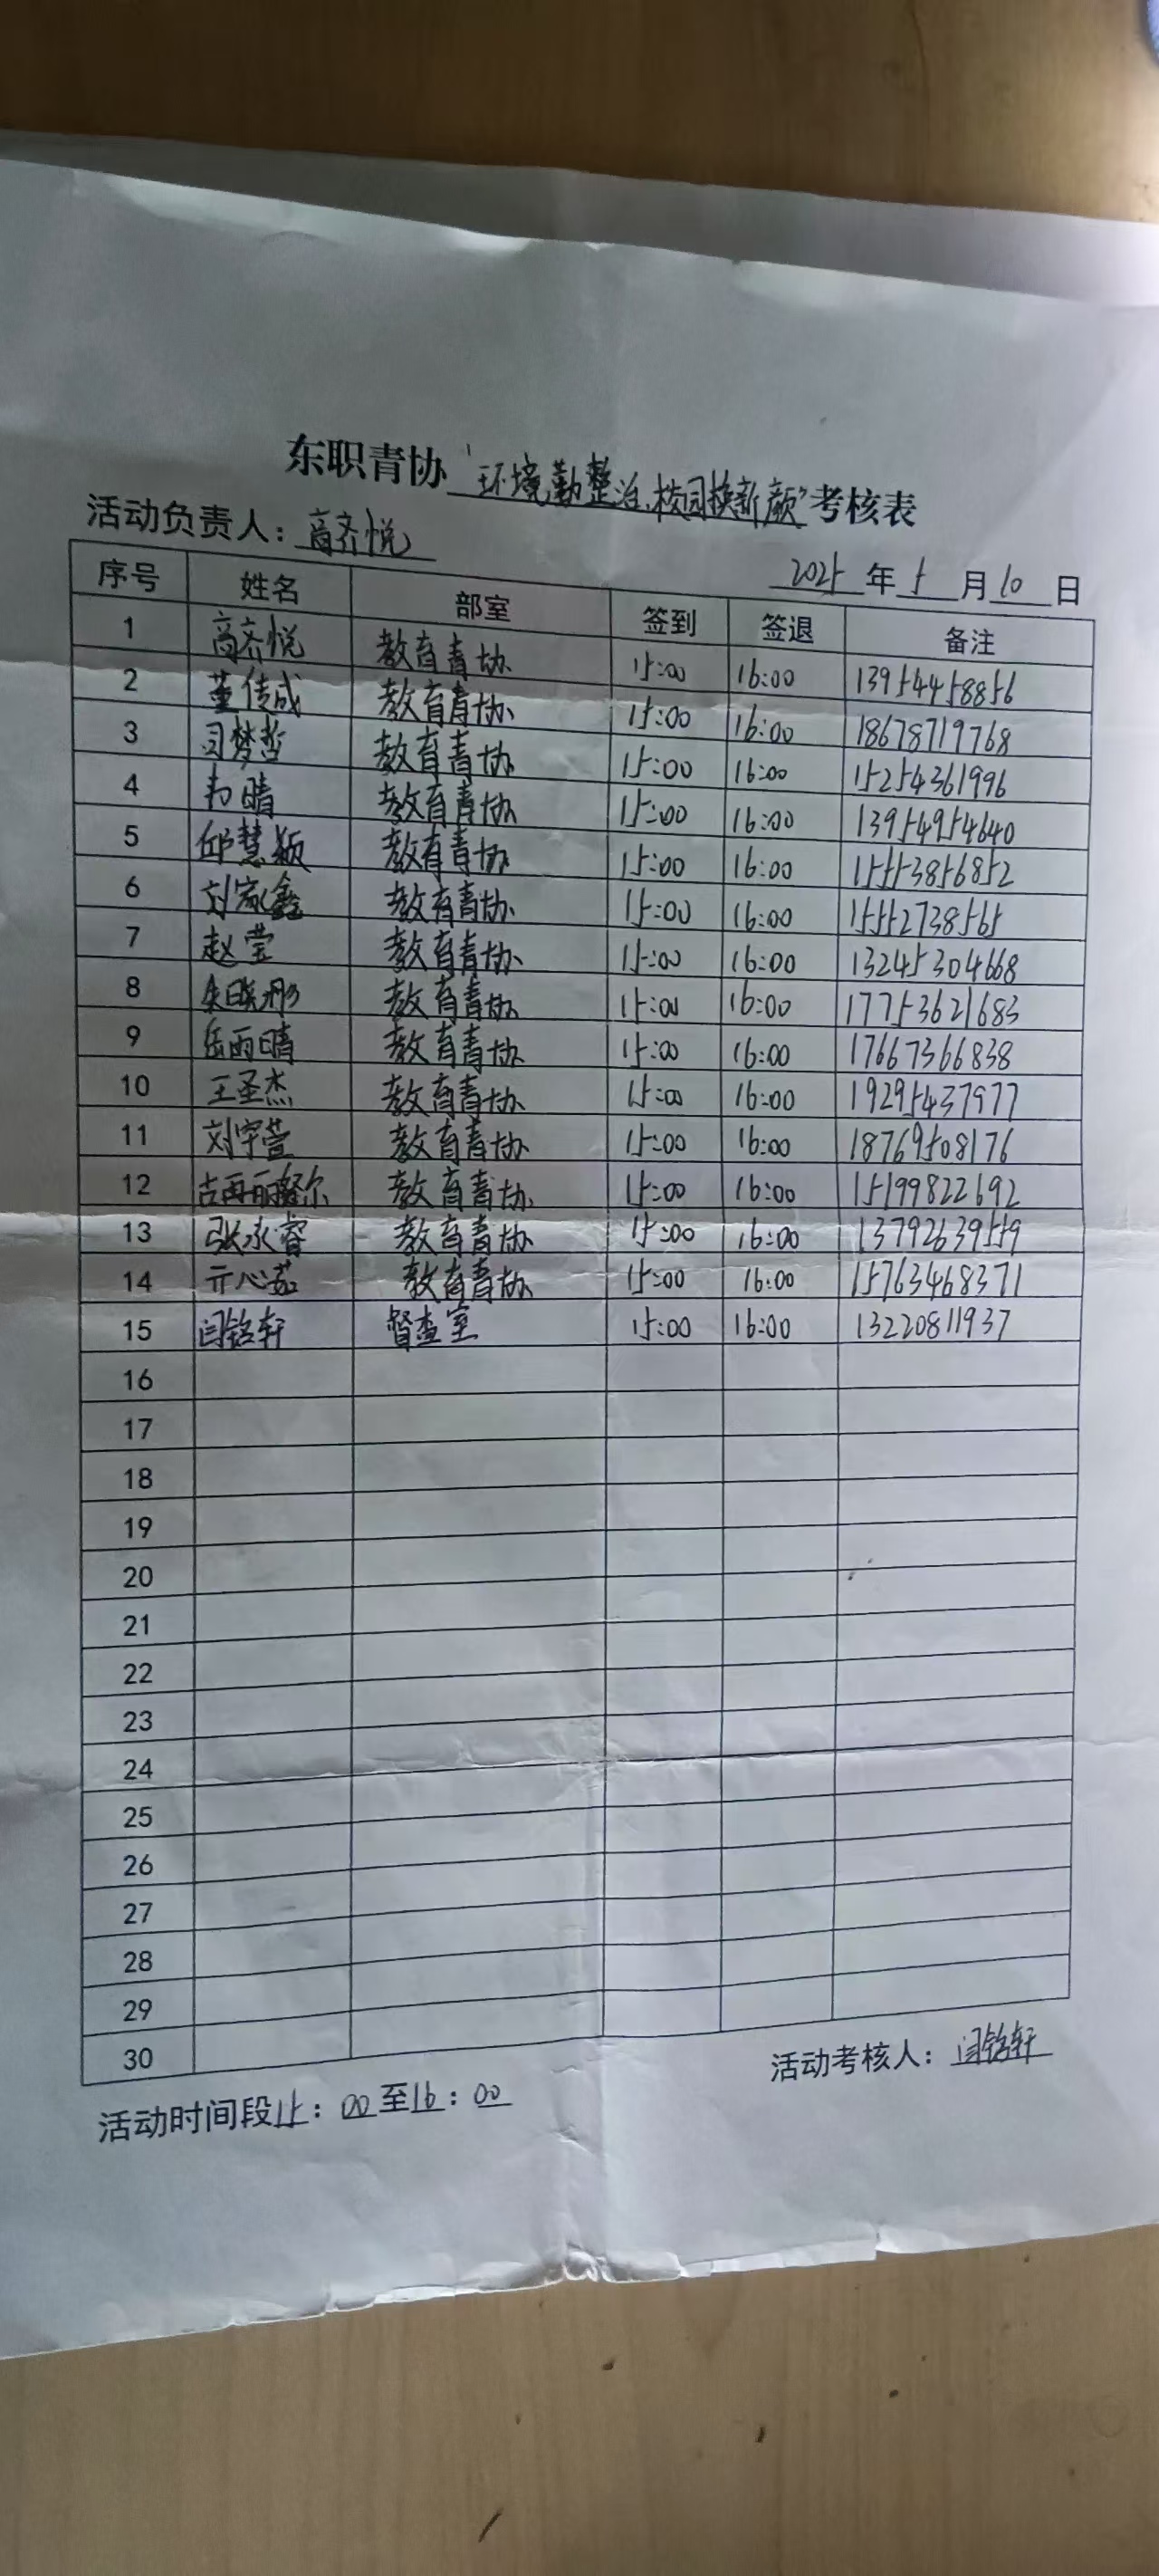 东职青协“环境勤整治,校园换新颜”考核表
活动负责人：高齐悦
2025年5月10日
序号 姓名 部室 签到 签退 备注
1 高齐悦 教育青协 15:00 16:00 13954458856
2 董传成 教育青协 15:00 16:00 18678719768
3 司梦哲 教育青协 15:00 16:00 15254361996
4 韦晴 教育青协 15:00 16:00 13954954640
5 邱慧颖 教育青协 15:00 16:00 15553856852
6 刘家鑫 教育青协 15:00 16:00 15552738565
7 赵莹 教育青协 15:00 16:00 13245304668
8 教育青协 15:00 16:00 17753621683
9 岳雨晴 教育青协 15:00 16:00 17667366838
10 王圣杰 教育青协 15:00 16:00 19295437977
11 刘宇萱 教育青协 15:00 16:00 18769508176
12 教育青协 15:00 16:00 15199822692
13 张永睿 教育青协 15:00 16:00 13792639559
14 亓心茹 教育青协 15:00 16:00 15763468371
15 闫铭轩 督查室 15:00 16:00 13220811937
16
17
18
19
20
21
22
23
24
25
26
27
28
29
30
活动考核人：闫铭轩
活动时间段15：00至16：00